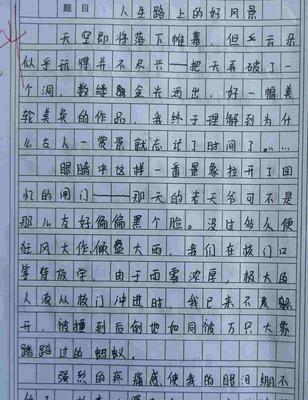 题目: 人生路上的好风景
天空即将落下帷幕,但云朵
似乎玩得并不尽兴——把天弄破了一
个洞,数缕金光洒出,好一幅美
轮美奂的作品。我终于理解到为什
么古人一赏景就忘记了时间了……
眼睛中这样一番景象拉开了回
忆的闸门——那天的老天爷可不是
那么友好偏偏黑个脸。没过多久便
狂风大作,倾盘大雨,我们在校门口
等等放学。由于雨雾浓厚,极大的
人流从校门冲进时,我已来不及躲
开,被撞到后倒地如同被万只大象
踏踏过的蚂蚁。
强烈的疼痛感使我的眼泪绷不